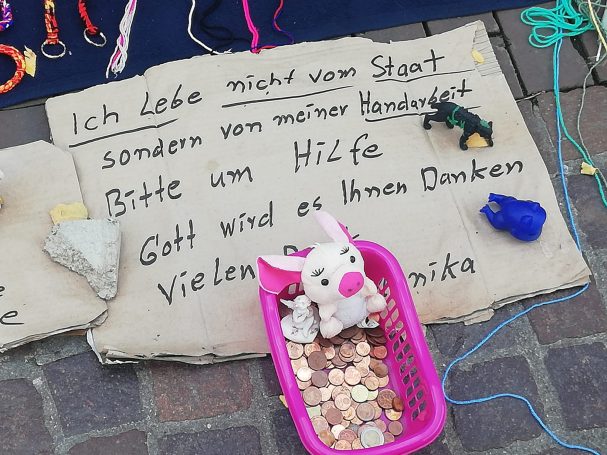 Ich Lebe nicht vom Staat
sondern von meiner Handarbeit
Bitte um Hilfe
Gott wird es Ihnen Danken
Vielen nika
e